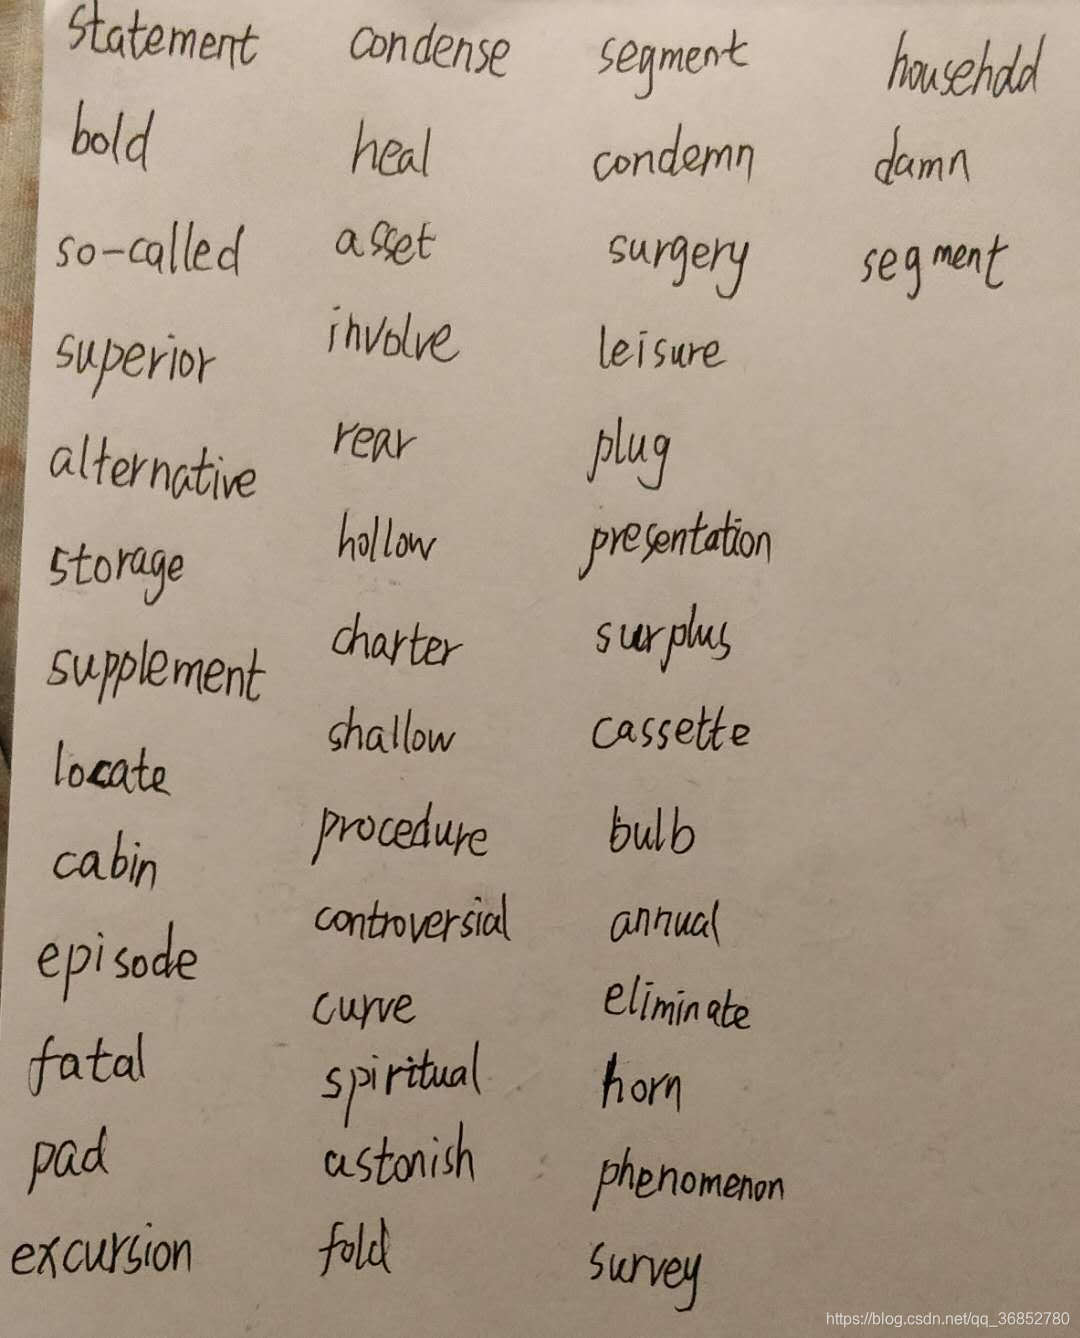 statement
bold
so-called
superior
alternative
storage
supplement
locate
cabin
episode
fatal
pad
excursion
condense
heal
asset
involve
rear
hollow
charter
shallow
procedure
controversial
curve
spiritual
astonish
fold
segment
condemn
surgery
leisure
plug
presentation
surplus
cassette
bulb
annual
eliminate
horn
phenomenon
survey
household
damn
segment
https://blog.csdn.net/qq_36852780